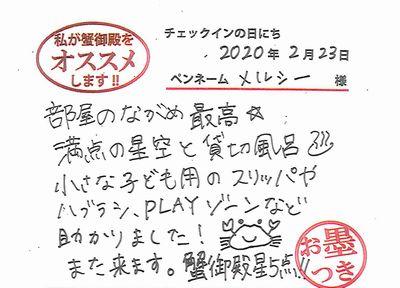 私が蟹御殿を
オススメ
します!!
チェックインの日にち
2020年2月23日
ペンネーム メルシー 様
部屋のながめ最高☆
満点の星空と貸切風呂♨
小さな子ども用のスリッパや
ハブラシ、PLAYゾーンなど
助かりました!
また来ます。蟹御殿星5点!!
お墨
つき